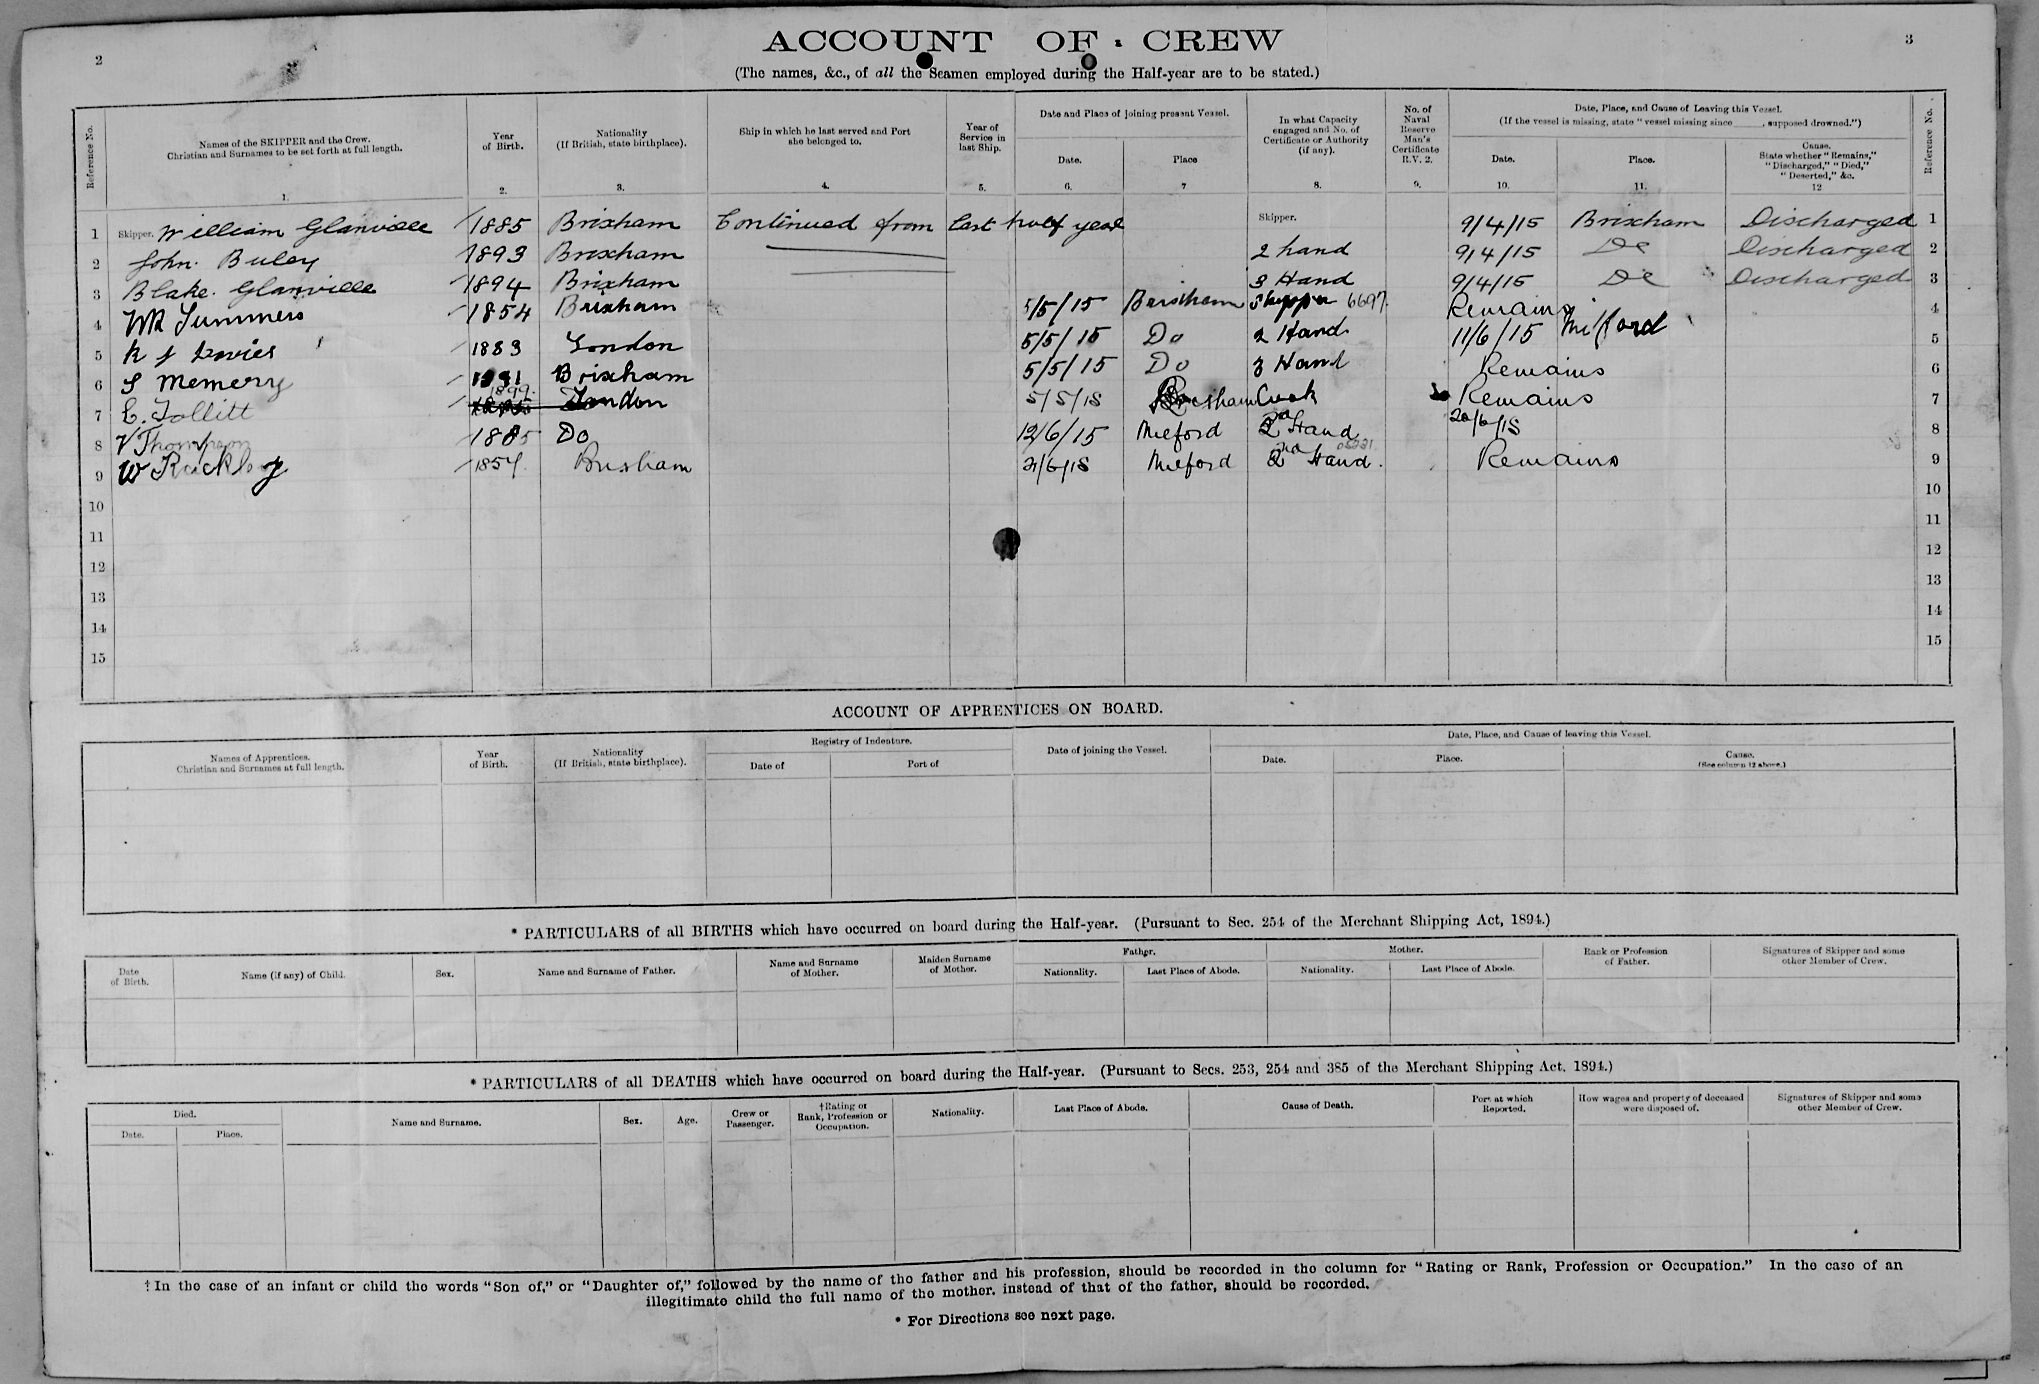 2
ACCOUNT OF CREW
3
(The names, &c., of all the Seamen employed during the Half-year are to be stated.)
Reference No.
Names of the SKIPPER and the Crew.
Christian and Surnames to be set forth at full length.
1.
Year
of Birth.
2.
Nationality
(If British, state birthplace).
3.
Ship in which he last served and Port
she belonged to.
4.
Year of
Service in
last Ship.
5.
Date and Place of joining present Vessel.
Date.
6.
Place
7
In what Capacity
engaged and No. of
Certificate or Authority
(if any).
8.
No. of
Naval
Reserve
Man's
Certificate
R.V. 2.
9.
Date, Place, and Cause of Leaving this Vessel.
(If the vessel is missing, state "vessel missing since ____, supposed drowned.")
Date.
10.
Place.
11.
Cause.
State whether "Remains,"
"Discharged," "Died,"
"Deserted," &c.
12
Reference No.
1 Skipper. William Glanville 1885 Brixham Continued from last half year Skipper. 9/4/15 Brixham Discharged 1
2 John Buley 1893 Brixham 2 hand 9/4/15 Do Discharged 2
3 Blake Glanville 1894 Brixham 3 Hand 9/4/15 Do Discharged 3
4 WR Summers 1854 Brixham 5/5/15 Brixham Skipper 6697 Remains 4
5 R J Davies 1883 London 5/5/15 Do 2 Hand 11/6/15 Milford 5
6 S Memery 1891 Brixham 5/5/15 Do 3 Hand Remains 6
7 C. Tollitt 1899 London 5/5/15 Brixham Cook Remains 7
8 V Thompson 1885 Do 12/6/15 Milford 2nd Hand 20/6/15 8
9 W 1854 Brixham 21/6/15 Milford 2nd Hand. Remains 9
10 10
11 11
12 12
13 13
14 14
15 15
ACCOUNT OF APPRENTICES ON BOARD.
Names of Apprentices.
Christian and Surnames at full length.
Year
of Birth.
Nationality
(If British, state birthplace).
Registry of Indenture.
Date of
Port of
Date of joining the Vessel.
Date, Place, and Cause of leaving this Vessel.
Date.
Place.
Cause.
(See column 12 above.)
* PARTICULARS of all BIRTHS which have occurred on board during the Half-year. (Pursuant to Sec. 254 of the Merchant Shipping Act, 1894.)
Date
of Birth.
Name (if any) of Child.
Sex.
Name and Surname of Father.
Name and Surname
of Mother.
Maiden Surname
of Mother.
Father.
Nationality.
Last Place of Abode.
Mother.
Nationality.
Last Place of Abode.
Rank or Profession
of Father.
Signatures of Skipper and some
other Member of Crew.
* PARTICULARS of all DEATHS which have occurred on board during the Half-year. (Pursuant to Secs. 253, 254 and 385 of the Merchant Shipping Act, 1894.)
Died.
Date.
Place.
Name and Surname.
Sex.
Age.
Crew or
Passenger.
†Rating or
Rank, Profession or
Occupation.
Nationality.
Last Place of Abode.
Cause of Death.
Port at which
Reported.
How wages and property of deceased
were disposed of.
Signatures of Skipper and some
other Member of Crew.
† In the case of an infant or child the words "Son of," or "Daughter of," followed by the name of the father and his profession, should be recorded in the column for "Rating or Rank, Profession or Occupation." In the case of an
illegitimate child the full name of the mother, instead of that of the father, should be recorded.
* For Directions see next page.